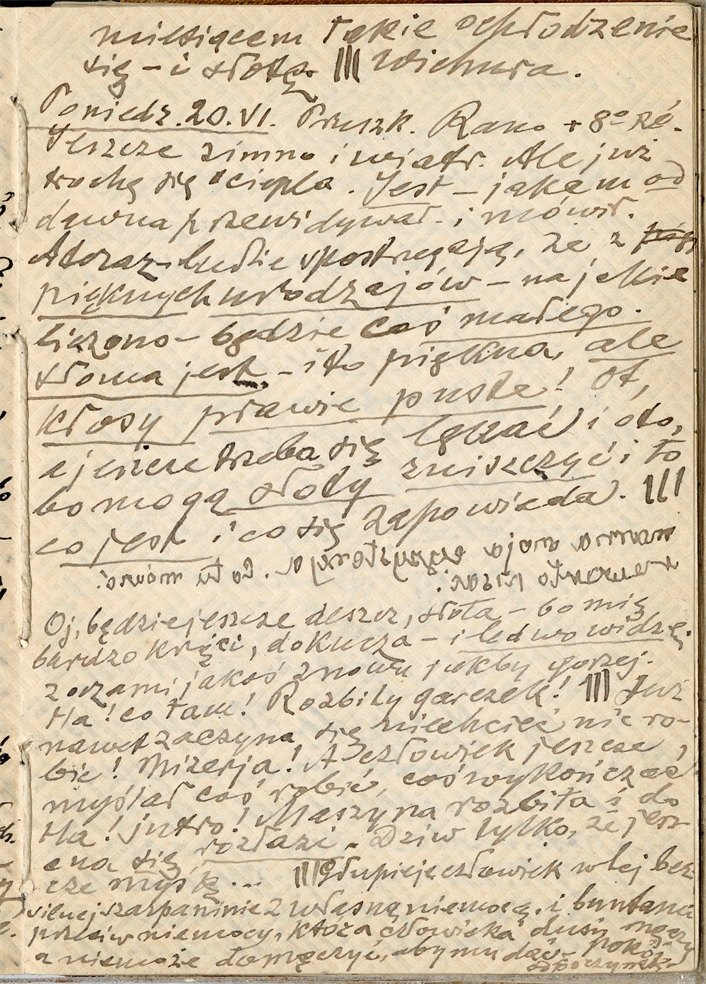 miesiącem takie ochłodzenie
się – i słotę. III Wichura.
Poniedz. 20.VI. Pruszk. Rano + 8° Ré.
Jeszcze zimno i wiatr. Ale już
trochę się ociepla. Jest – jakem od
dawna przewidywał i mówił.
A teraz ludzie spostrzegają, że z
pięknych urodzajów – na jakie
liczono – będzie coś małego.
słoma jest – i to piękna, ale
kłosy prawie puste! Ot,
a jeszcze trzeba się lękać i oto,
bo mogą słoty zniszczyć i to
co jest i co się zapowiada. III
mamra moja oczyszczona. Co tu mówić!
pisać.
Oj, będzie jeszcze deszcz, słota – bo mię
bardzo kręci, dokucza – i ledwo widzę.
z oczami jakoś znowu jakby gorzej.
Ha! co tam! Rozbity garczek! III Już
nawet zaczyna się niechcieć nic ro-
bić! Mizerja! A człowiek jeszcze
myślał coś robić, coś wykończać
Ha! jutro! Maszyna rozbita i do
cna się rozłazi. Dziw tylko, że jesz-
cze myślę... III Głupieje człowiek w tej bez-
silnej szarpaninie z własną niemocą, i buntaniu
przeciw niemocy, która człowieka dusi, męczy
a niemoże domęczyć, aby mu dać pokój
odpoczynek.